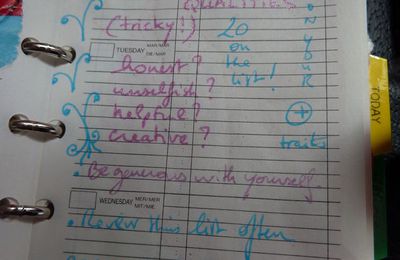 QUALITIES
(tricky!) 20
on
TUESDAY MAR/MAR DIE/MAR
the
honest? list!
unselfish?
helpful?
creative? + traits
NYOUR
TODAY
• Be generous with yourself.
WEDNESDAY MER/MER MIT/MIE
• Review this list often